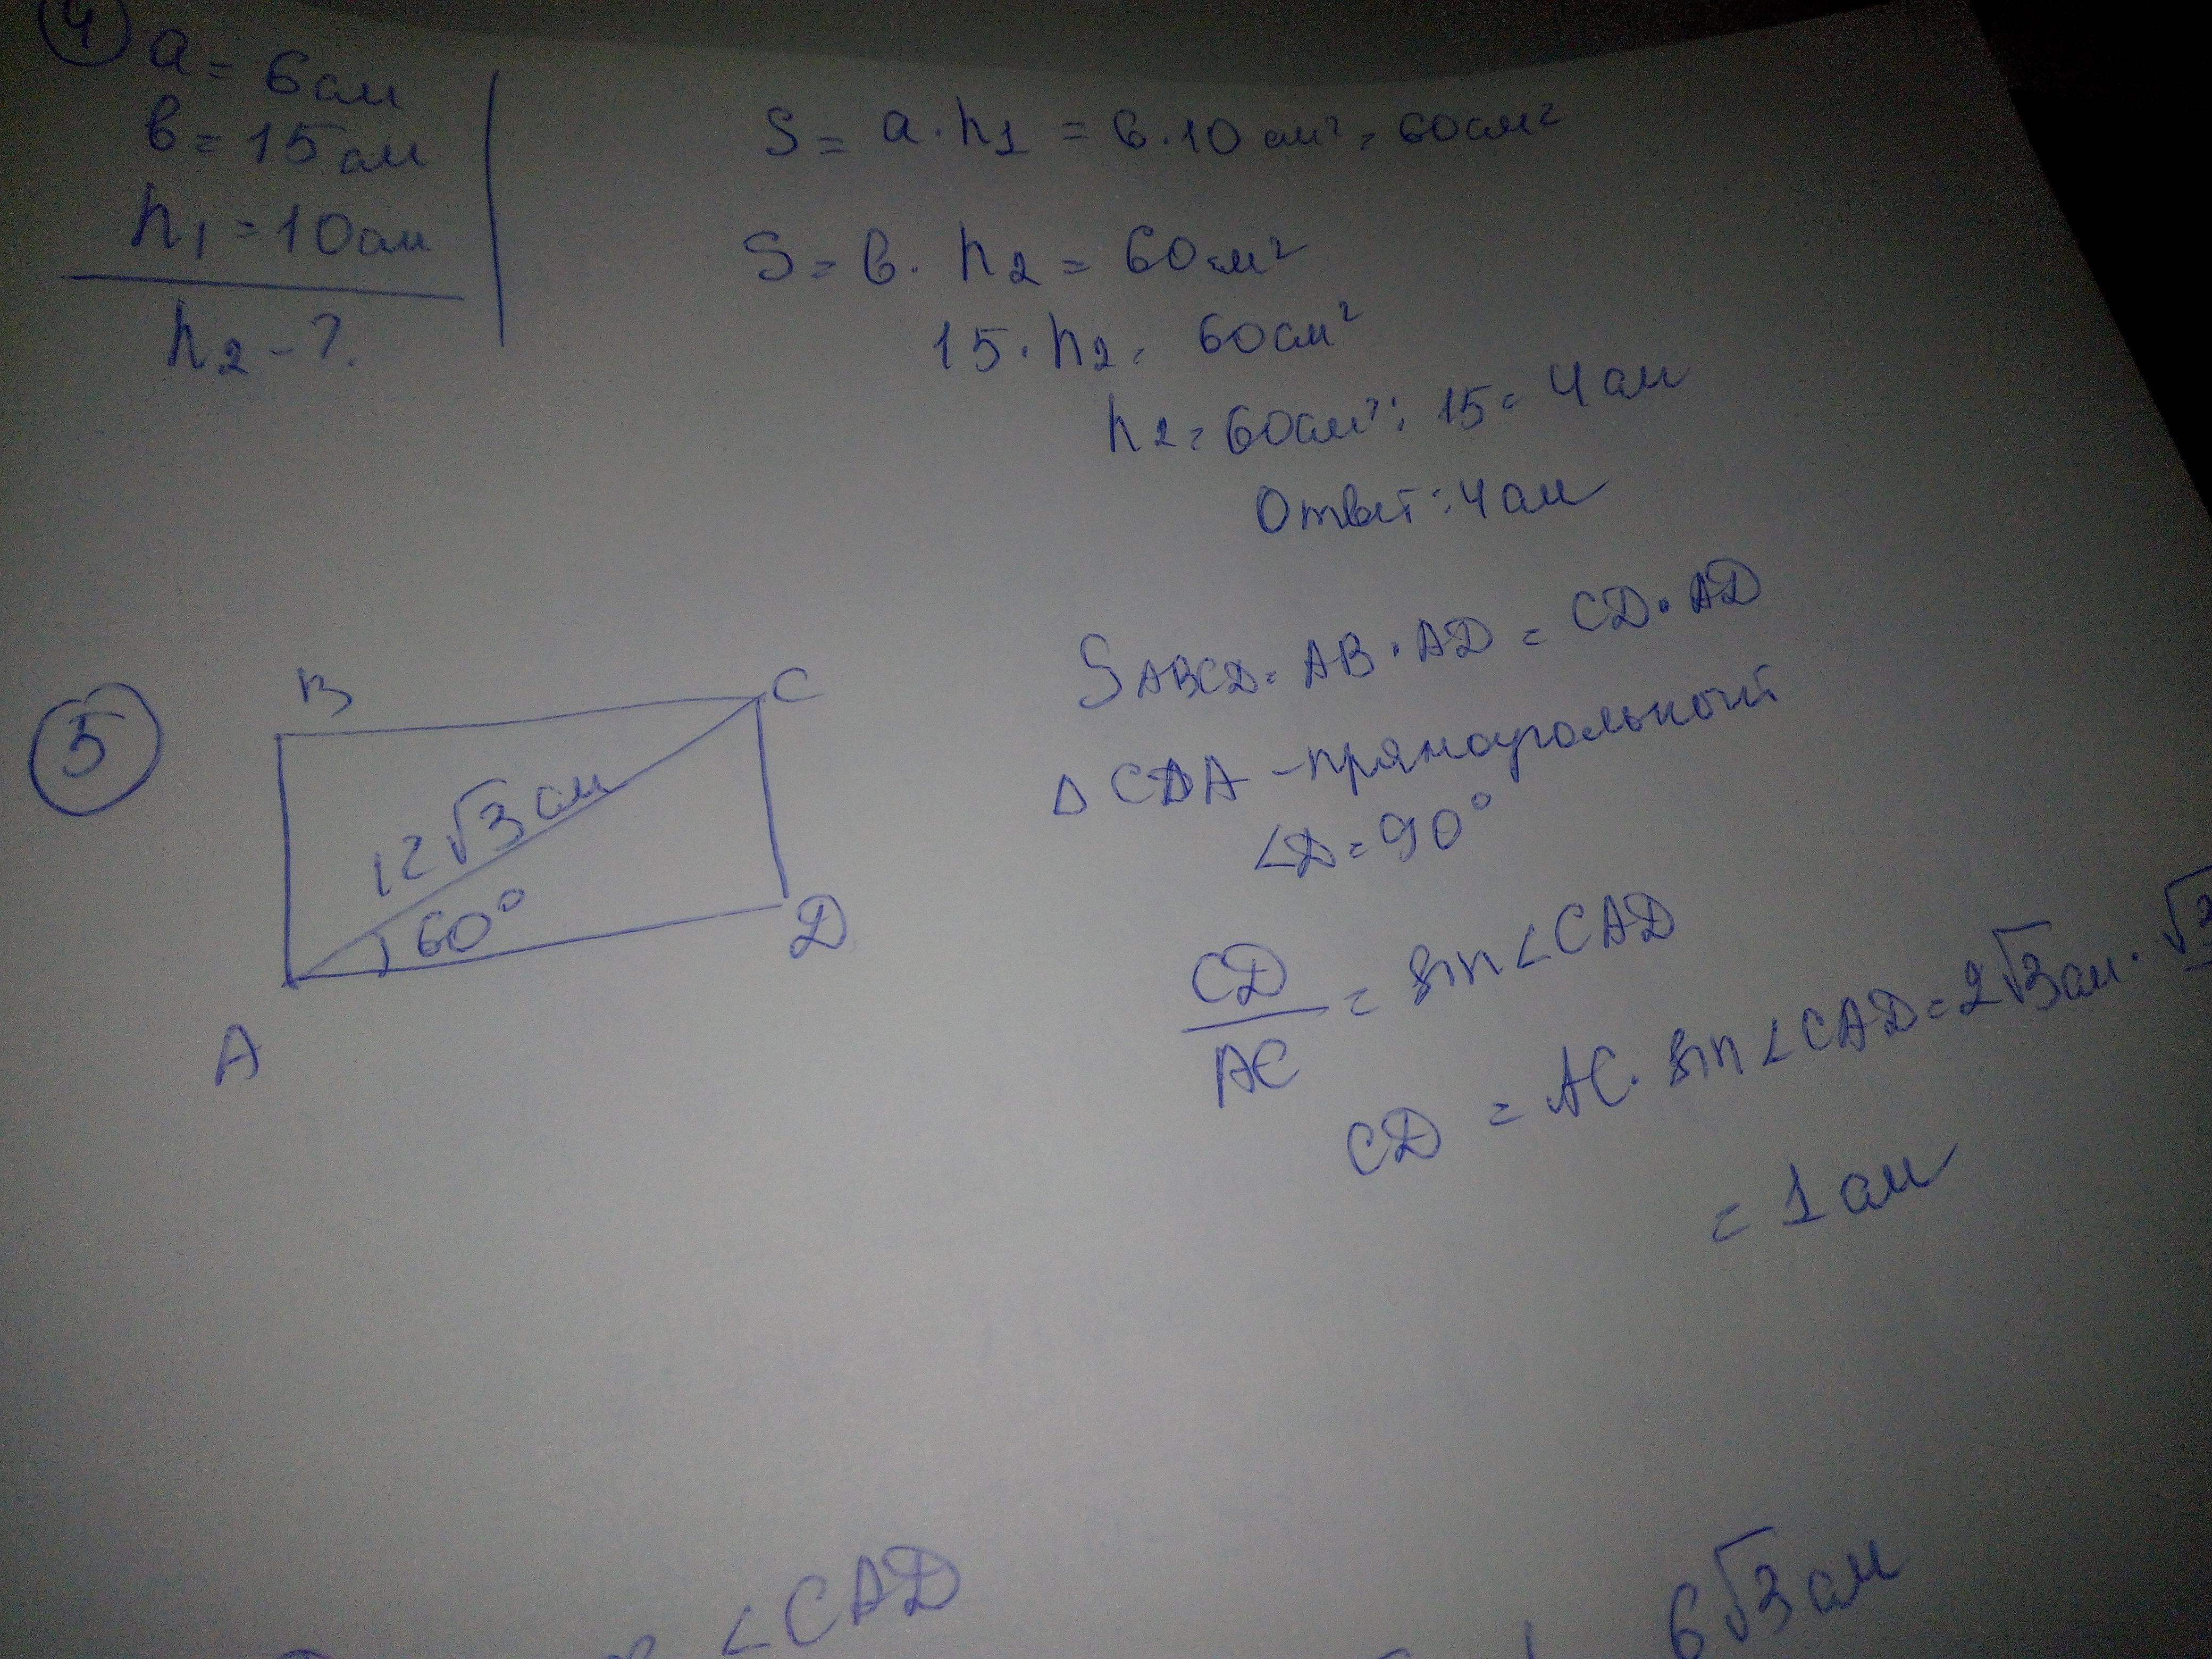 4
a = 6см
b = 15см
h1 = 10см
h2 - ?.
S = a · h1 = 6 · 10 см² = 60см²
S = b · h2 = 60см²
15 · h2 = 60см²
h2 = 60см² : 15 = 4 см
Ответ : 4 см
5
B
C
12√3 см
60°
A
D
SABCD = AB · AD = CD · AD
Δ CDA - прямоугольный
∠D = 90°
CD/AC = sin ∠CAD
CD = AC · sin ∠CAD = 2√3 см ·
= 1 см
∠CAD
6√3 см